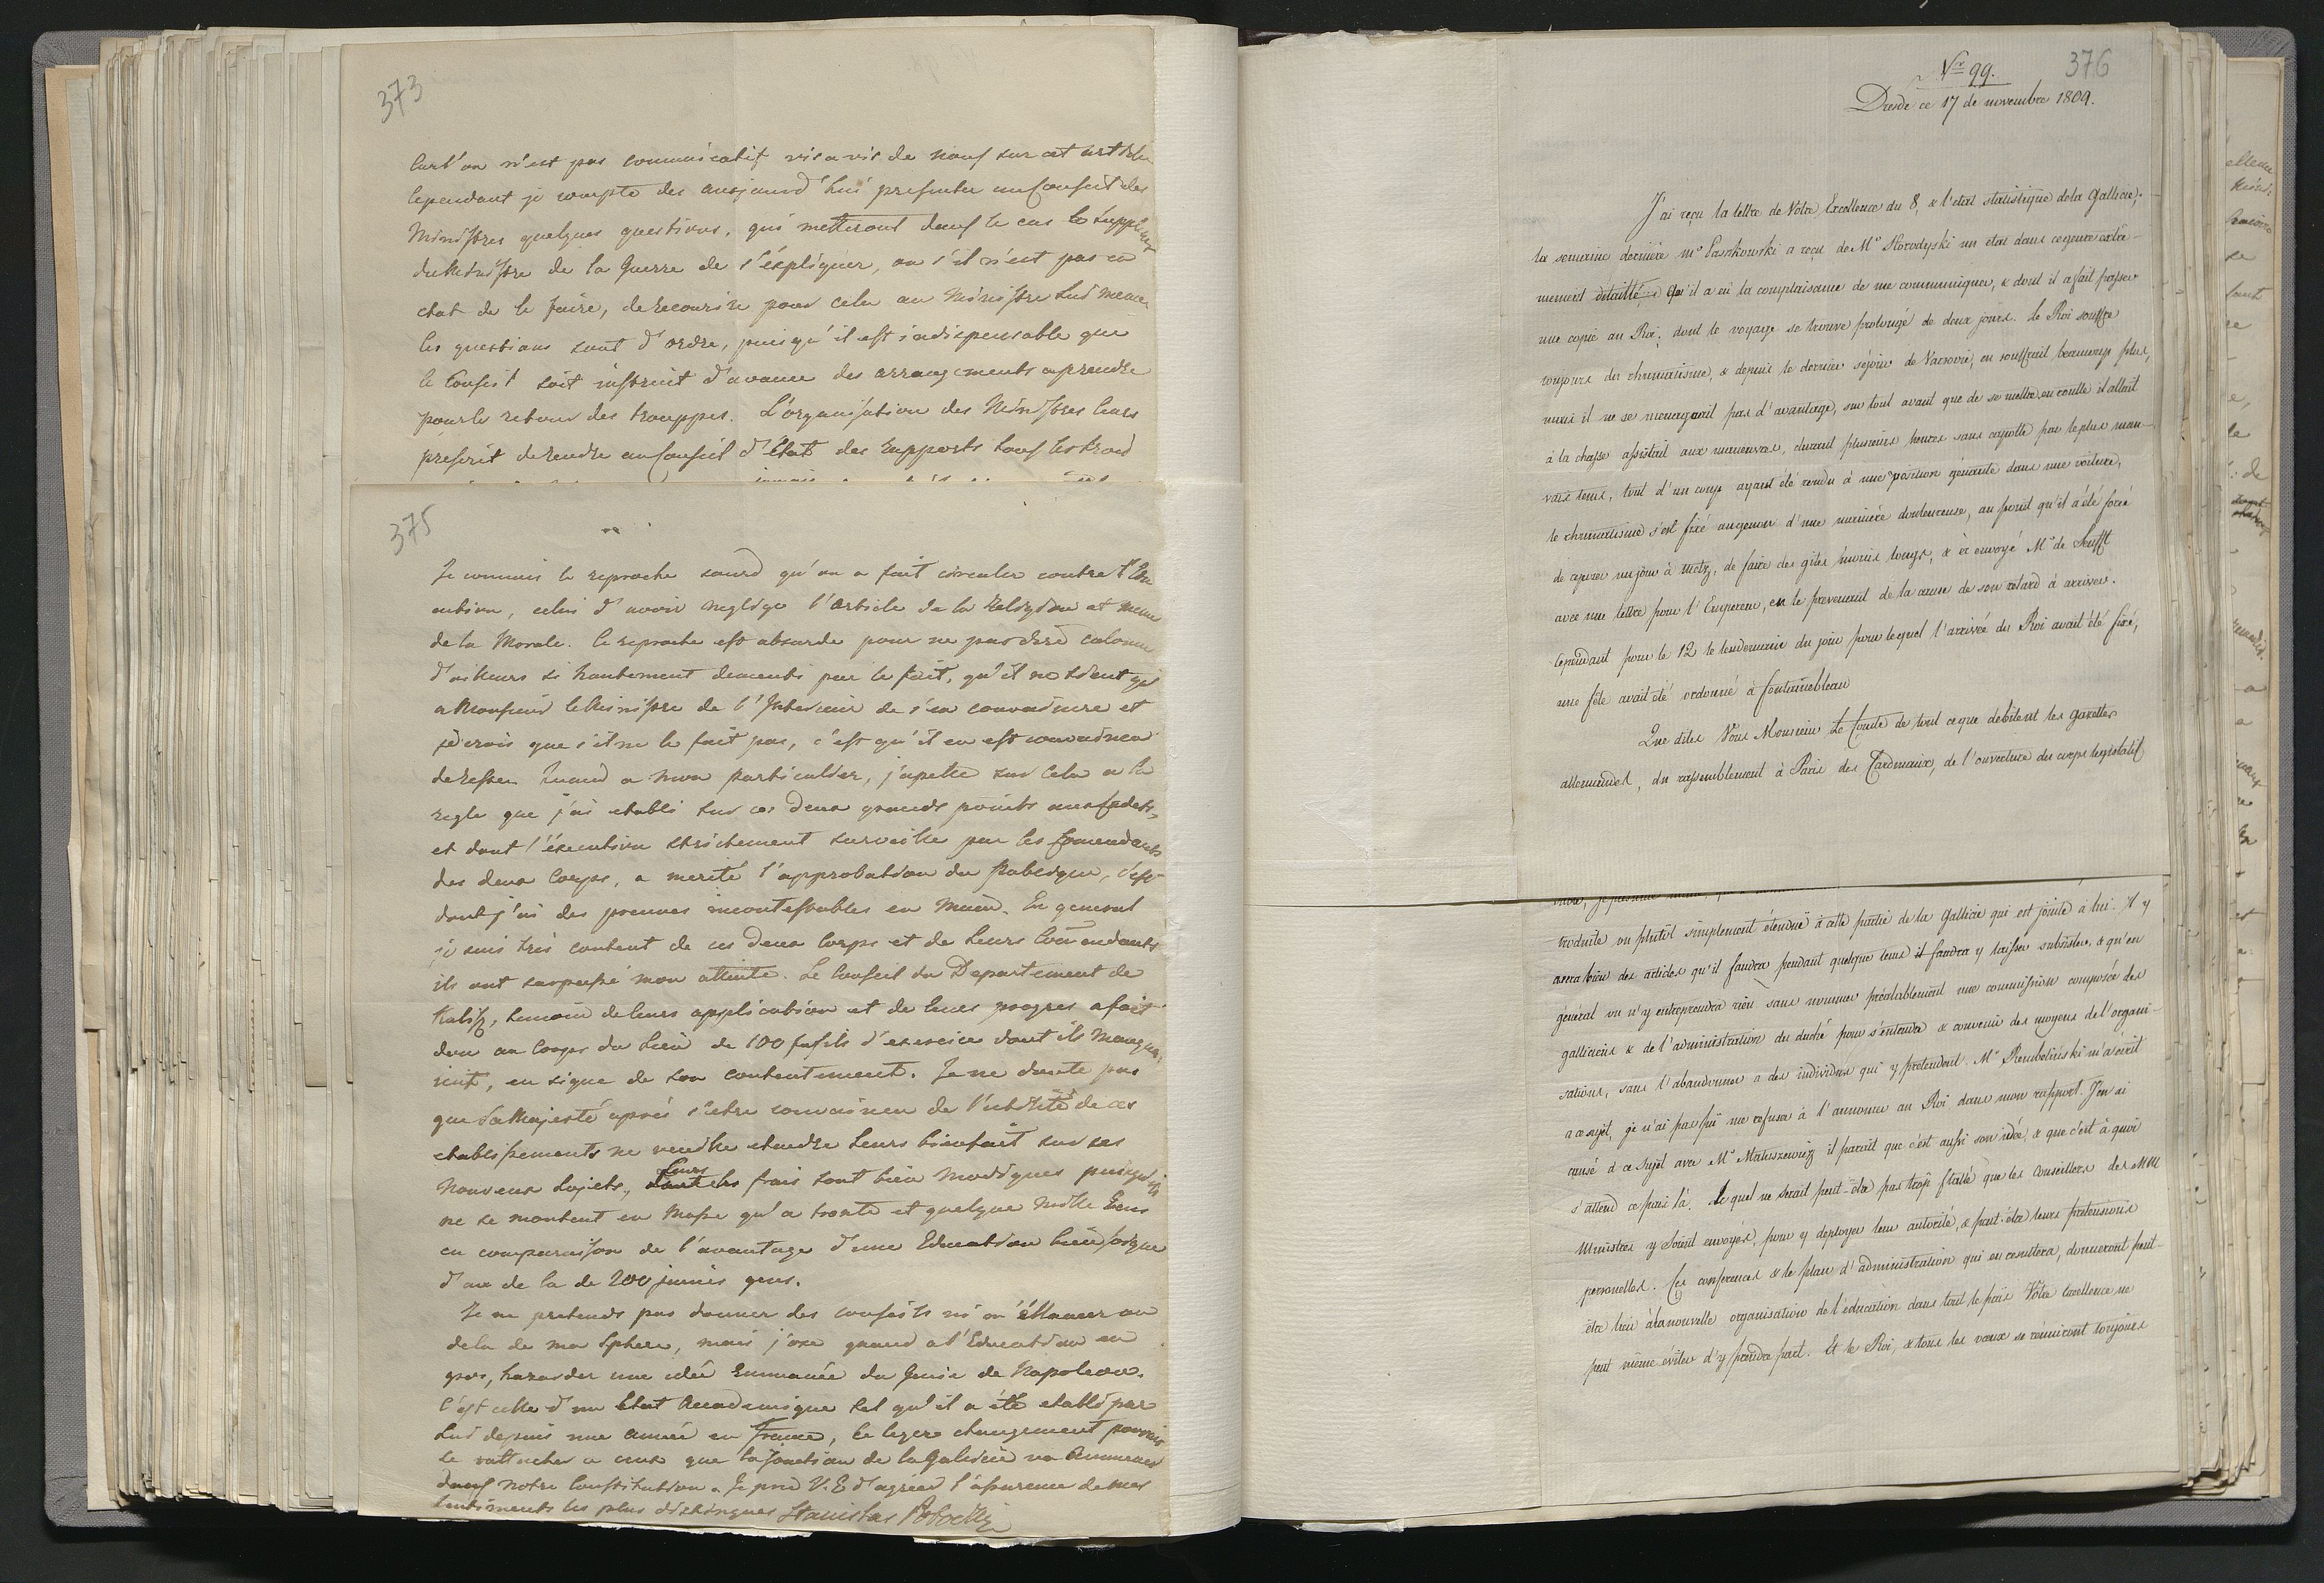 373
l'on n'est pas communicatif vis a vis de nous sur cet article
Cependant je compte des aujourd'hui presenter au Conseil des
Ministres quelques questions, qui metteront dans le cas le suppléant
du Ministre de la Guerre de s'éxpliquer, ou s'il n'est pas en
etat de le faire, de recourire pour cela au Ministre Lui meme
les questions sont d'ordre, puisqu'il est indispensable que
le Conseil soit instruit d'avance des arrangements a prendre
pour le retour des trouppes. L'organisation des Ministres leurs
prescrit de rendre au Conseil d'État des rapports tous les trois
375
Je connais le reproche sourd qu'on a fait circuler contre l'Edu
cation, celui d'avoir neglige l'article de la Religion et meme
de la Morale. Ce reproche est absurde pour ne pas dire calomn
d'ailleurs si hautement dementi par le fait, qu'il ne tient qu'
a Monsieur le Ministre de l'Interieur de s'en convaincre et
je crois que s'il ne le fait pas, c'est qu'il en est convaincu
de reste. Quand a mon particulier, j'apelle sur cela a la
regle que j'ai etabli sur ces deux grands points aux Cadets,
et dont l'éxecution strictement surveillée par les Comendants
des deux Corps, a merité l'approbation du Publique, c'est
dont j'ai des preuves incontestables en main. En general
je suis très content de ces deux Corps et de leurs Comendants
ils ont surpassé mon attente. Le Conseil du Departement de
Kalisz, temoin de leurs application et de leurs progres a fait
don au Corps du Lieu de 100 fusils d'exercice dont ils manqua
ient, en signe de son contentement. Je ne doute pas
que Sa Majesté aprés s'etre convaincu de l'utilité de ces
etablissements ne veuille etendre leurs bienfait sur ses
nouveaux sujets, leurs frais sont bien modiques puisqu'ils
ne se montent en Masse qu'a trente et quelque mille Ecus
en comparaison de l'avantage d'une Education bien soignée
d'au de la de 200 jeunes gens.
Je ne pretends pas donner des conseils ni m'éllancer au
dela de ma sphere, mais j'ose quand a l'Education en
gros, hazarder une idée emmanée du Genie de Napoleon.
C'est celle d'un Etat Academique tel qu'il a été etabli par
Lui depuis une année en France, ce leger changement pourrait
se rattacher a ceux que la jonction de la Galicie va emmener
dans notre Constitution. Je prie V. E d'agréer l'assurence de mes
sentiments les plus distingues Stanislas Potocki
376
Nr 99.
Dresde ce 17 de novembre 1809.
J'ai reçu la lettre de Votre Excellence du 8, & l'etat statistique de la Gallicie;
la semaine dernière Mr Paszkowski a reçu de Mr Horodyski un etat dans ce genre extrê-
mement detaillé qu'il a eü la complaisance de me communiquer, & dont il a fait passer
une copie au Roi; dont le voyage se trouve prolongé de deux jours. Le Roi souffre
toujours du rhumatisme, & depuis le dernier séjour de Varsovie, en souffrait beaucoup plus,
mais il ne se menageait pas d'avantage, sur tout avant que de se mettre en route il allait
à la chasse assistait aux manœuvres, durant plusieurs heures sans capotte par le plus mau-
vais tems, tout d'un coup ayant été rendu à une position gênante dans une voiture,
le rhumatisme s'est fixé au genou d'une manière douloureuse, au point qu'il a été forcé
de reposer un jour à Metz, de faire des gîtes moins longs, & à envoyé Mr de Senfft
avec une lettre pour l'Empereur, en le prevenant de la cause de son retard à arriver.
Cependant pour le 12 le lendemain du jour pour lequel l'arrivée du Roi avait été fixé,
une fête avait été ordonné à Fontainebleau
Que dites Vous Monsieur Le Comte de tout ce que debitent les gazettes
allemandes, du rassemblement à Paris des Cardinaux, de l'ouverture du corps legislatif
troduite ou plutôt simplement étendue à cette partie de la Gallicie qui est jointe à lui. Il y
aura bien des articles qu'il faudra pendant quelque tems il faudra y laisser subsister, & qu'en
général on n'y entreprendra rien sans nommer préalablement une commission composée des
galliciens & de l'administration du duché pour s'entendre & convenir des moyens de l'organi-
sations, sans l'abandonner a des individus qui y pretendent. Mr Rembeliński m'a écrit
a ce sujet, je n'ai pas pu me refuser à l'annoncer au Roi dans mon rapport. J'en ai
causé à ce sujet avec Mr Matuszewicz il parait que c'est aussi son idée, & que c'est à quoi
s'attend ce païs là. Le quel ne serait peut-être pas trop flatté que les Conseillers des MM
Ministres y soient envoyés, pour y deployer leur autorité, & peut-être leurs pretensions
personelles. Ces conferences & le plan d'administration qui en resultera, donneront peut-
être lieu à la nouvelle organisation de l'education dans tout le païs Votre Excellence ne
peut même éviter d'y prendre part. Et le Roi, & tous les vœux se réuniront toujours